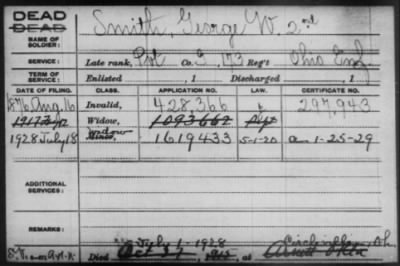 DEAD
DEAD
NAME OF SOLDIER: Smith, George W. 2nd
SERVICE: Late rank, Pvt Co. I, 173 Reg't Ohio Inf.
TERM OF SERVICE: Enlisted , 1 Discharged , 1
DATE OF FILING. CLASS. APPLICATION NO. LAW. CERTIFICATE NO.
1876 Aug. 16 Invalid, 428,366 297,943
Widow, 1093667
1928 July 18 Minor, widow 1619433 5-1-20 a 1-25-29
ADDITIONAL SERVICES:
REMARKS: July 1-1928 Circleville, Oh.
Died Oct 27, at